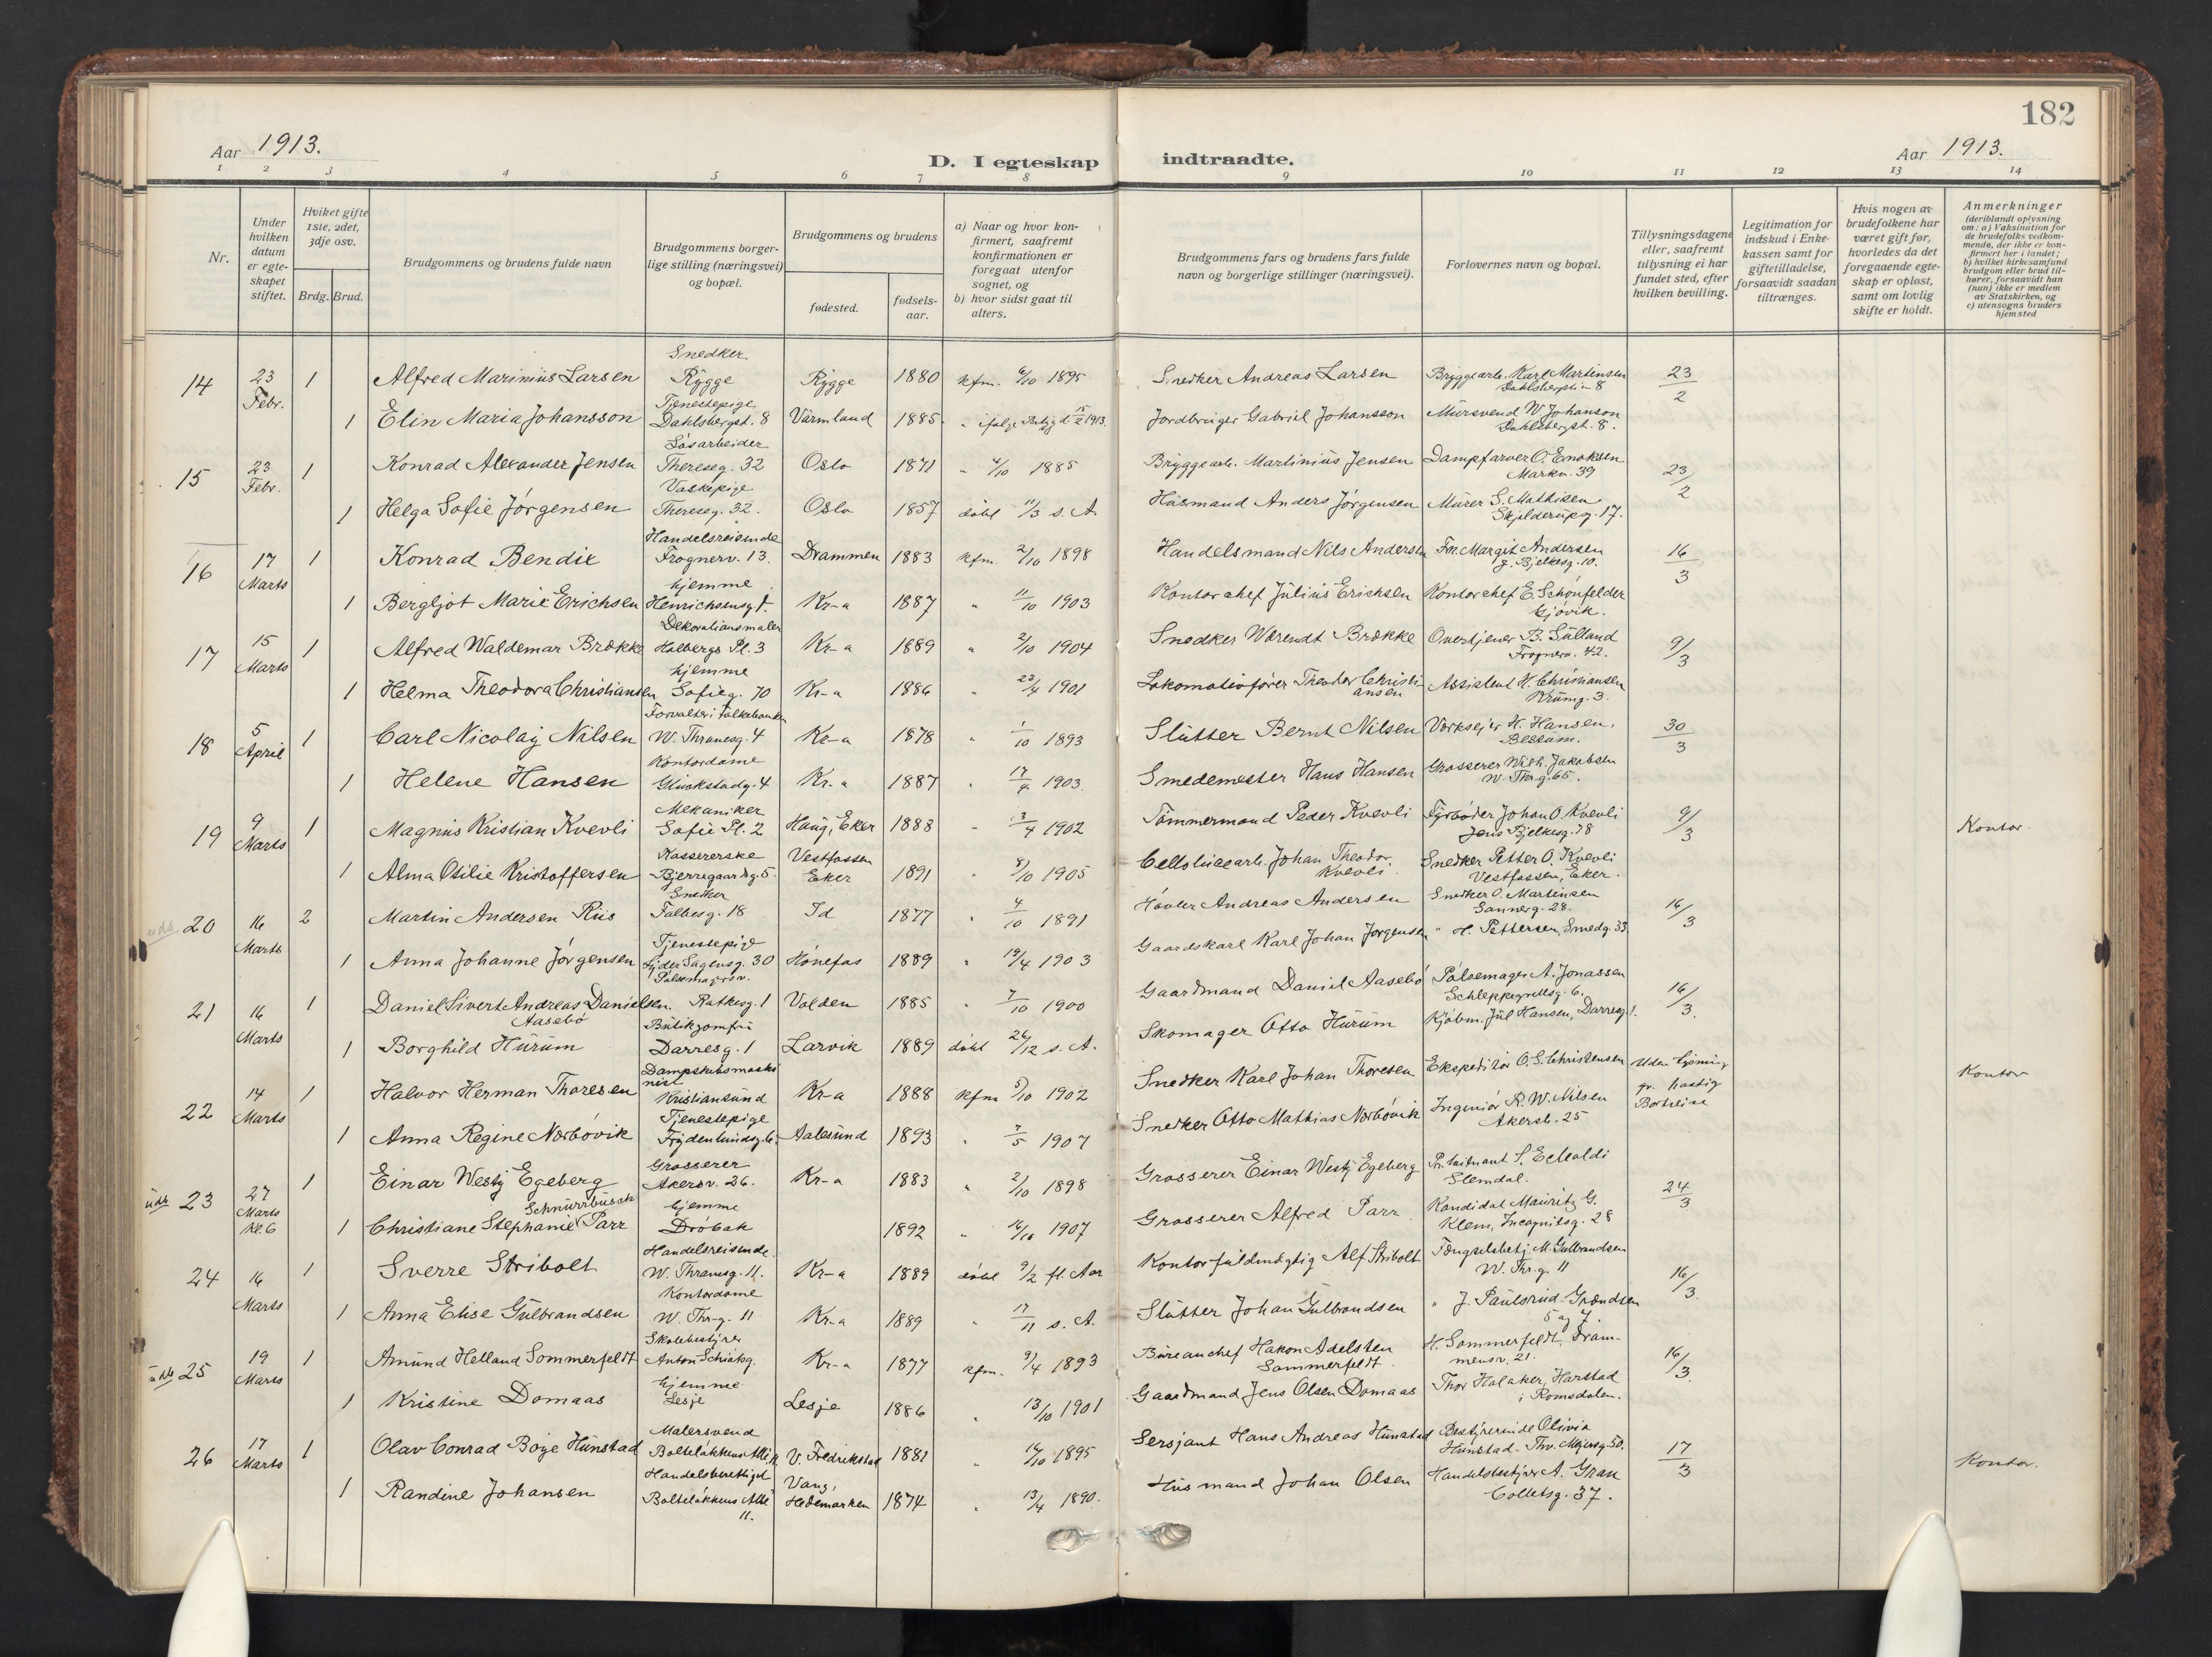 182
Aar 1913.
D. I egteskap indtraadte.
Aar 1913.
1 2 3 4 5 6 7 8 9 10 11 12 13 14
Nr.
Under hvilken datum er egte-skapet stiftet.
Hvilket gifte 1ste, 2det, 3dje osv.
Brdg. Brud.
Brudgommens og brudens fulde navn
Brudgommens borger-lige stilling (næringsvei) og bopæl.
Brudgommens og brudens
fødested.
fødsels-aar.
a) Naar og hvor kon-firmert, saafremt konfirmationen er foregaat utenfor sognet, og
b) hvor sidst gaat til alters.
Brudgommens fars og brudens fars fulde navn og borgerlige stillinger (næringsvei).
Forlovernes navn og bopæl.
Tillysningsdagene eller, saafremt tillysning ei har fundet sted, efter hvilken bevilling.
Legitimation for indskud i Enke-kassen samt for giftetilladelse, forsaavidt saadan tiltrænges.
Hvis nogen av brudefolkene har været gift før, hvorledes da det foregaaende egte-skap er opløst, samt om lovlig skifte er holdt.
Anmerkninger (deriblandt oplysning om: a) Vaksination for de brudefolks vedkom-mende, der ikke er kon-firmert her i landet; b) hvilket kirkesamfund brudgom eller brud til-hører, forsaavidt han (hun) ikke er medlem av Statskirken, og c) utensogns bruders hjemsted
14 23 Febr. 1 Alfred Marinius Larsen Snedker Rygge Rygge 1880 kfm. 6/10 1895 Snedker Andreas Larsen Bryggearb. Karl Martinsen Dahlsbergstien 8 23/2
1 Elin Maria Johansson Tjenestepige Dahlsbergst. 8 Värmland 1885 Jordbruger Gabriel Johansson Mursvend W. Johanson Dahlsbergst. 8.
15 23 Febr. 1 Konrad Alexander Jensen Løsarbeider Thereseg. 32 Oslo 1871 " 4/10 1885 Bryggearb. Martinius Jensen Dampfarver O. Enoksen Markv. 39 23/2
1 Helga Sofie Jørgensen Vaskepige Thereseg. 32. Oslo 1857 døbt 11/3 s. A. Husmand Anders Jørgensen Murer S. Mathisen Skjelderupg. 17.
16 17 Marts 1 Konrad Bendix Handelsreisende Frognerv. 13. Drammen 1883 kfm. 2/10 1898 Handelsmand Nils Andersen Frk. Margit Andersen J. Bjelkesg. 10. 16/3
1 Bergljot Marie Erichsen hjemme Henrichsensg. 1. Kr-a 1887 " 11/10 1903 Kontorchef Julius Erichsen Kontorchef E. Schønfelder Gjøvik.
17 15 Marts 1 Alfred Waldemar Brække Dekorationsmaler Holbergs Pl. 3 Kr-a 1889 " 2/10 1904 Snedker Wærendt Brække Overtjener B. Sulland Frognerv. 42. 9/3
1 Helma Theodora Christiansen hjemme Sofieg. 70 Kr-a 1886 " 23/4 1901 Lokomotivfører Theodor Christiansen Assistent H. Christiansen Krumg. 3.
18 5 April 1 Carl Nicolay Nilsen Forvalter i Folkebanken W. Thranesg. 4 Kr-a 1878 " 1/10 1893 Slutter Bernt Nilsen Værksejer H. Hansen, Bestum. 30/3
1 Helene Hansen Kontordame Gluckstadg. 4 Kr.a 1887 " 17/4 1903. Smedemester Hans Hansen Grosserer Wilh. Jakobsen W. Thr.g. 65.
19 9 Marts 1 Magnus Kristian Kvevli Mekaniker Sofie Pl. 2 Haug, Eker 1888 " 13/4 1902 Tømmermand Peder Kvevli Fyrbøder Johan O. Kvevli Jens Bjelkesg. 78 9/3 Kontor.
1 Alma Otilie Kristoffersen Kassererske Bjerregaardsg. 5. Vestfossen Eker 1891 " 8/10 1905 Johan Theodor. Kvevli. Snedker Petter O. Kvevli Vestfossen, Eker.
uds 20 16 Marts 2 Martin Andersen Riis Snedker Falbesg. 18 Id 1877 " 4/10 1891 Høvler Andreas Andersen Snedker O. Martinsen Sannerg. 28. 16/3
1 Anna Johanne Jørgensen Tjenestepige Lyder Sagensg. 30 Hønefos 1889 " 19/4 1903 Gaardskarl Karl Johan Jørgensen " H. Pettersen, Smedg. 33
21 16 Marts 1 Daniel Sivert Andreas Danielsen Aasebø Pølsemagersv. Rathkesg. 1 Volden 1885 " 7/10 1900 Gaardmand Daniel Aasebø Pølsemager A. Jonassen Schleppegrellsg. 6. 16/3.
1 Borghild Hurum Butikjomfru Darresg. 1 Larvik 1889 døbt 26/12 s. A. Skomager Otto Hurum Kjøbm. Jul Hansen, Darresg. 1.
22 14 Marts 1 Halvor Herman Thoresen Dampskibsmaskinist Kristiansund Kr-a 1888 kfm 5/10 1902 Snedker Karl Johan Thoresen Ekspeditør O. S. Christensen Uden lysning gr. hastig Bortreise Kontor
1 Anna Regine Nærbøvik Tjenestepige Frydenlundsg. 6. Aalesund 1893 " 7/5 1907 Snedker Otto Mathias Nærbøvik Ingeniør R. W. Nilsen Akersb. 25
uds 23 27 Marts Kl. 6 1 Einar Westy Egeberg Grosserer Akersv. 26. Kr-a 1883 " 2/10 1898 Grosserer Einar Westy Egeberg Pr.løitnant Slemdal. 24/3
1 Christiane Stephanie Schnurrbusch Parr hjemme Drøbak 1892 " 1907 Grosserer Alfred Parr Kandidat Mauritz G. Klem, Incognitog. 28
24 16 Marts 1 Sverre Stribolt Handelsreisende. W. Thranesg. 11. Kr-a 1889 døbt 9/2 fl. Aar Kontorfuldmægtig Alf Stribolt Fængselsbetj. M. Gulbrandsen W. Thr.g. 11 16/3.
1 Anna Elise Gulbrandsen Kontordame W. Thr-g. 11 Kr.a 1889 " 17/11 s. A. Slutter Johan Gulbrandsen " J. Paulsrud - Grændsen 5 og 7.
uds 25 19 Marts 1 Amund Helland Sommerfeldt Skolebestyrer Anton Schiøtsg. Kr-a 1877 kfm. 9/4 1893 Bureauchef Hakon Adelsten Sommerfeldt. H. Sommerfeldt, Drammensv. 21. 16/3.
1 Kristine Domaas hjemme Lesje Lesje 1886 " 13/10 1901 Gaardmand Jens Olsen Domaas Thor Holaker, Harstad i Romsdalen.
26 17 Marts 1 Olav Conrad Boye Hunstad Malersvend Bolteløkkens Alle 11. V. Fredrikstad 1881 " 1895 Sersjant Hans Andreas Hunstad Bestyrerinde Olivia Hunstad - Thv. Meyersg. 50. 17/3 Kontor.
1 Randine Johansen Handelsberettiget Bolteløkkens Alle 11. Vang, Hedemarken 1874 " 13/4 1890. Husmand Johan Olsen Handelsbestyrer A. Gran Colletsg. 37.